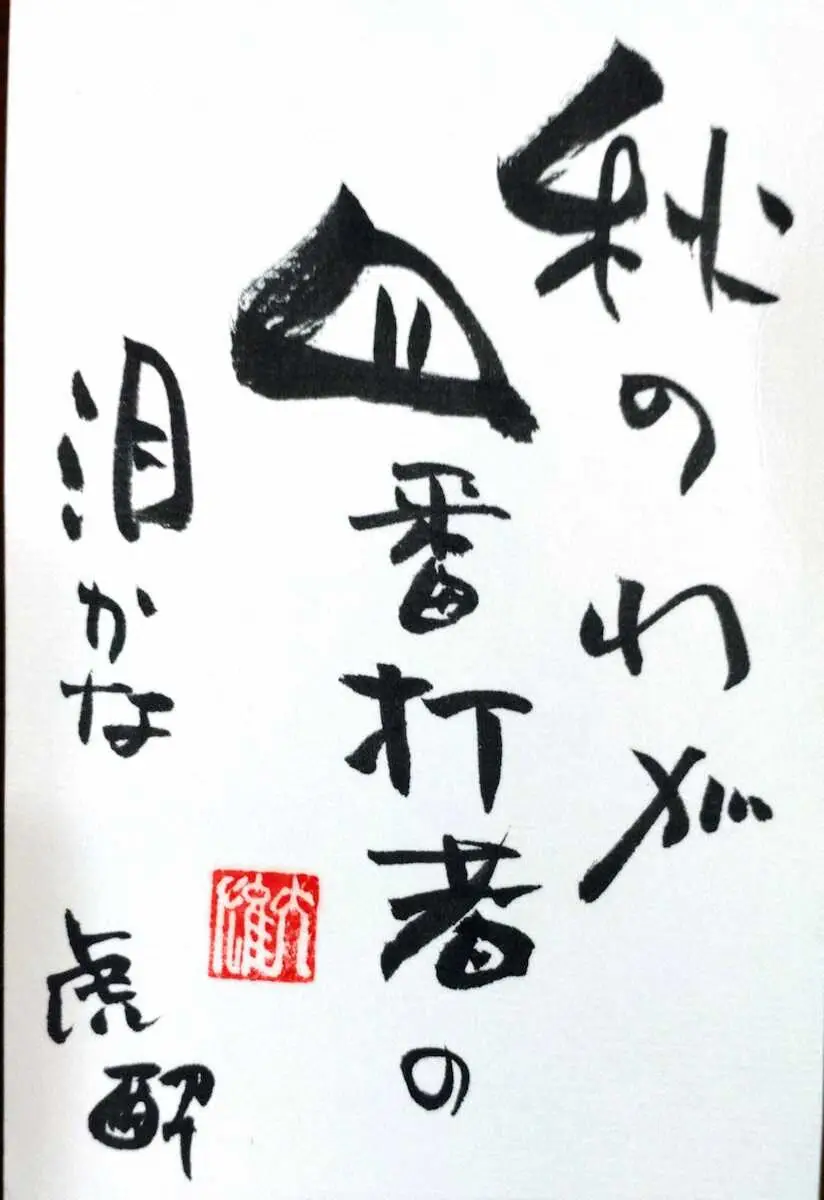 秋のわが
四番打者の
泪かな
虎酔